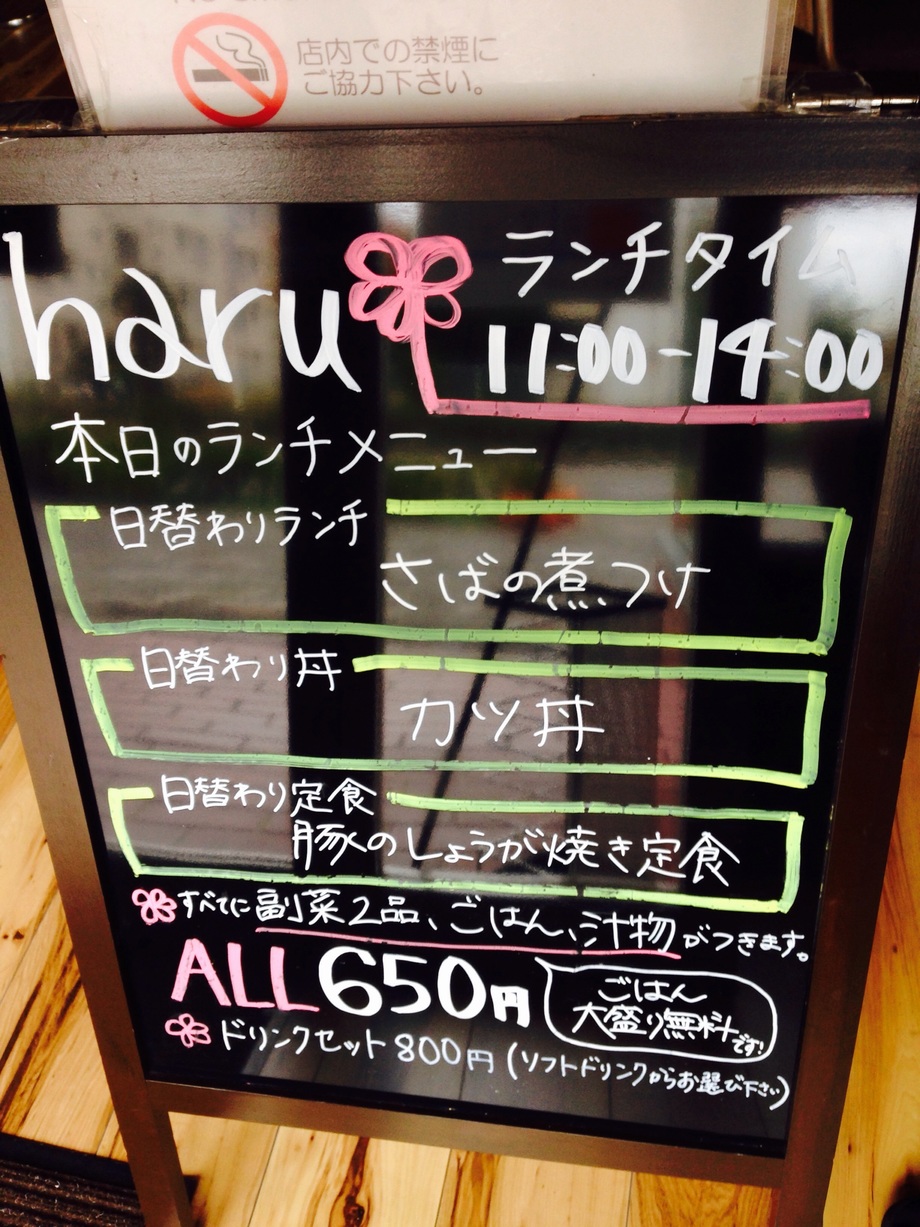 店内での禁煙に
ご協力下さい。
haru
ランチタイム
11:00-14:00
本日のランチメニュー
日替わりランチ
さばの煮つけ
日替わり丼
カツ丼
日替わり定食
豚のしょうが焼き定食
すべてに副菜2品、ごはん、汁物がつきます。
ALL650円
ごはん
大盛り無料です!
ドリンクセット800円(ソフトドリンクからお選び下さい)